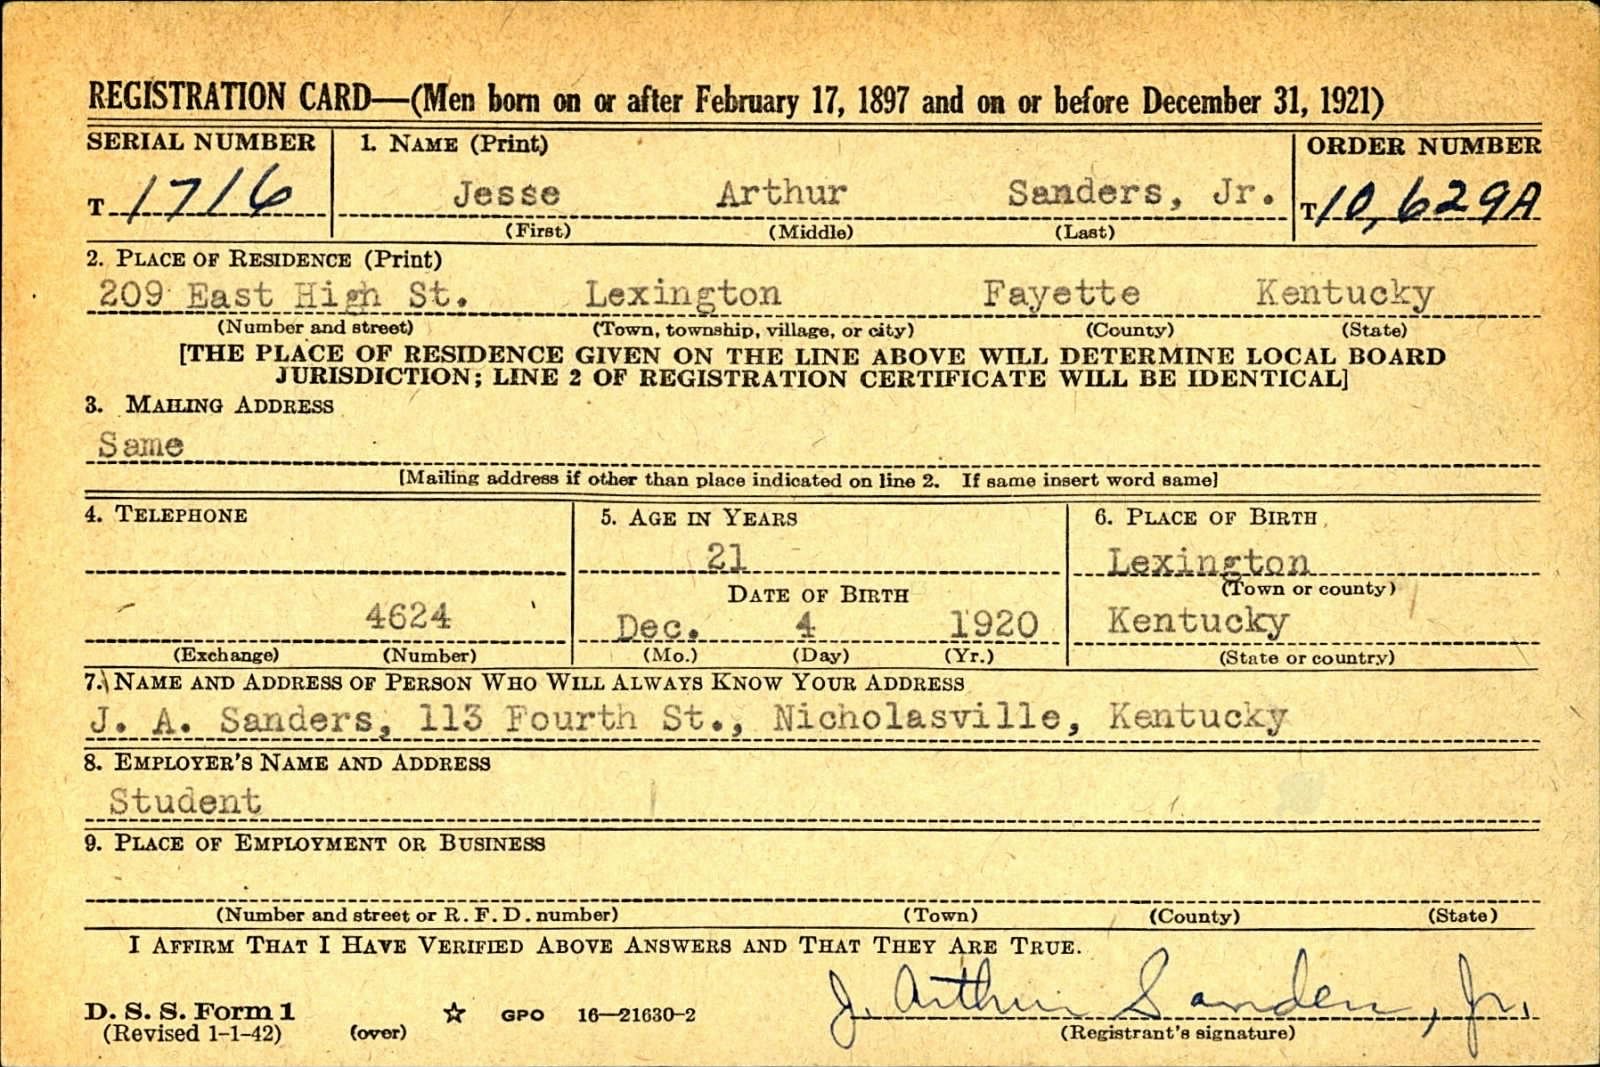 REGISTRATION CARD—(Men born on or after February 17, 1897 and on or before December 31, 1921)
SERIAL NUMBER 1. NAME (Print) ORDER NUMBER
T 1716 Jesse Arthur Sanders, Jr. T 10,629A
(First) (Middle) (Last)
2. PLACE OF RESIDENCE (Print)
209 East High St. Lexington Fayette Kentucky
(Number and street) (Town, township, village, or city) (County) (State)
[THE PLACE OF RESIDENCE GIVEN ON THE LINE ABOVE WILL DETERMINE LOCAL BOARD
JURISDICTION; LINE 2 OF REGISTRATION CERTIFICATE WILL BE IDENTICAL]
3. MAILING ADDRESS
Same
[Mailing address if other than place indicated on line 2. If same insert word same]
4. TELEPHONE 5. AGE IN YEARS 6. PLACE OF BIRTH
21 Lexington
DATE OF BIRTH (Town or county)
4624 Dec. 4 1920 Kentucky
(Exchange) (Number) (Mo.) (Day) (Yr.) (State or country)
7. NAME AND ADDRESS OF PERSON WHO WILL ALWAYS KNOW YOUR ADDRESS
J. A. Sanders, 113 Fourth St., Nicholasville, Kentucky
8. EMPLOYER'S NAME AND ADDRESS
Student
9. PLACE OF EMPLOYMENT OR BUSINESS
(Number and street or R. F. D. number) (Town) (County) (State)
I AFFIRM THAT I HAVE VERIFIED ABOVE ANSWERS AND THAT THEY ARE TRUE.
J. Arthur Sanders, Jr.
D. S. S. Form 1 GPO 16—21630-2
(Revised 1-1-42) (over) (Registrant's signature)